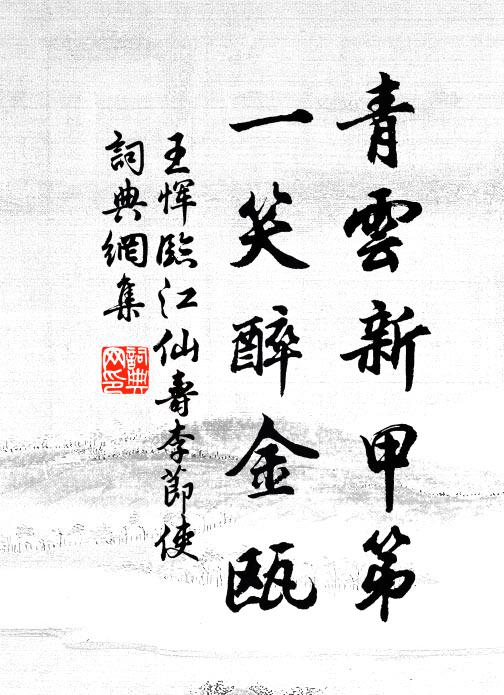 青雲新甲第
一笑醉金甌
王惲臨江仙壽李節使
詞典網集
詞典
网印